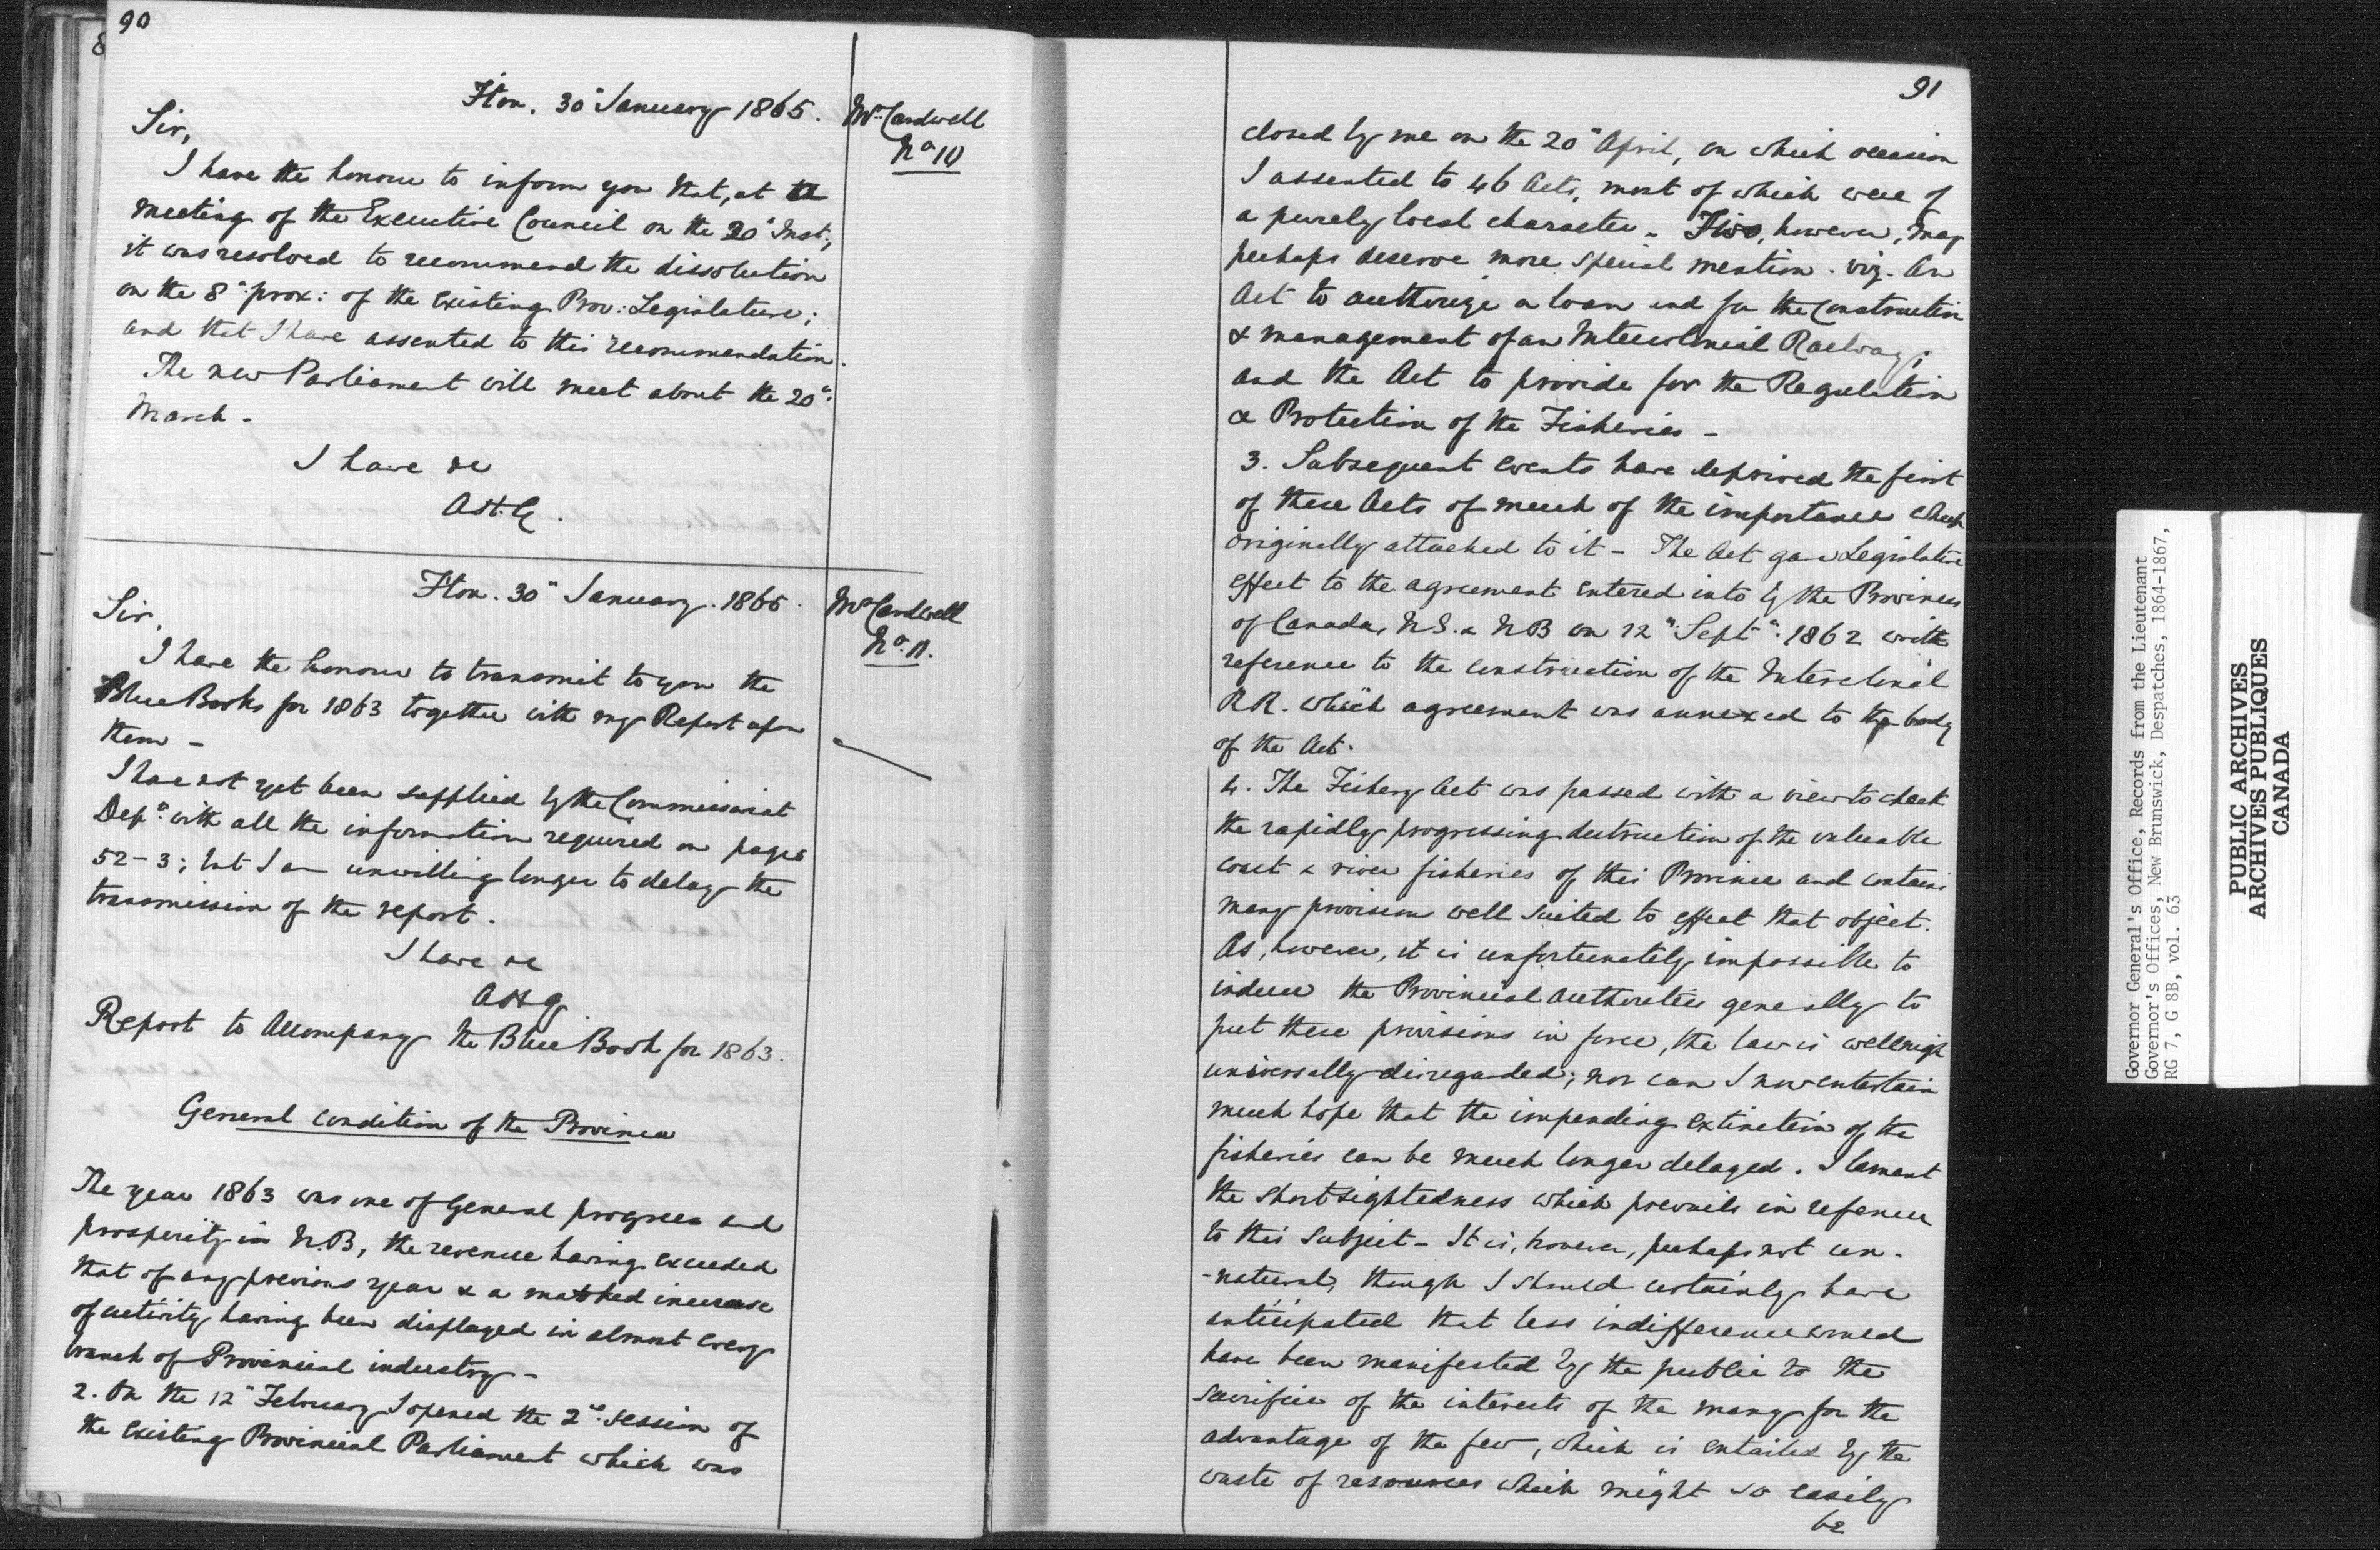 90
Fton. 30" January 1865.
Mr Cardwell
No 10
Sir,
I have the honour to inform you that, at a
meeting of the Executive Council on the 20" Inst;
it was resolved to recommend the dissolution
on the 8" prox: of the existing Prov: Legislature;
and that I have assented to this recommendation.
The new Parliament will meet about the 20"
March -
I have &c
A.H.G.
Fton. 30" January. 1865.
Mr Cardwell
No. 11.
Sir,
I have the honour to transmit to you the
Blue Books for 1863 together with my Report upon
them -
I have not yet been supplied by the Commissariat
Dept. with all the information required on pages
52-3; but I am unwilling longer to delay the
transmission of the report.
I have &c
AHG
Report to Accompany the Blue Book for 1863.
General condition of the Province
The year 1863 was one of General progress and
prosperity in N.B, the revenue having exceeded
that of any previous year & a marked increase
of activity having been displayed in almost every
branch of Provincial industry -
2. On the 12" February I opened the 2d. Session of
the existing Provincial Parliament which was
91
closed by me on the 20" April, on which occasion
I assented to 46 Acts, most of which were of
a purely local character - Two, however, may
perhaps deserve more special mention. viz. An
Act to authorize a loan and for the Construction
& management of an Intercolonial Railway;
and the Act to provide for the Regulation
& Protection of the Fisheries -
3. Subsequent events have deprived the first
of these Acts of much of the importance which
originally attached to it - The Act gave Legislative
effect to the agreement entered into by the Provinces
of Canada, N.S. & NB on 12" Sept". 1862 with
reference to the construction of the Intercolonial
RR. which agreement was annexed to the body
of the Act.
4. The Fishery Act was passed with a view to check
the rapidly progressing destruction of the valuable
coast & river fisheries of this Province and contains
many provision well suited to effect that object.
As, however, it is unfortunately impossible to
induce the Provincial Authorities generally to
put these provisions in force, the law is wellnigh
universally disregarded; nor can I now entertain
much hope that the impending extinction of the
fisheries can be much longer delayed. I lament
the shortsightedness which prevails in reference
to this subject - It is, however, perhaps not un-
-natural, though I should certainly have
anticipated that less indifference would
have been manifested by the public to the
sacrifice of the interests of the many for the
advantage of the few, which is entailed by the
waste of resources which might so easily
be
Governor General's Office, Records from the Lieutenant
Governor's Offices, New Brunswick, Despatches, 1864-1867,
RG 7, G 8B, vol. 63
PUBLIC ARCHIVES
ARCHIVES PUBLIQUES
CANADA